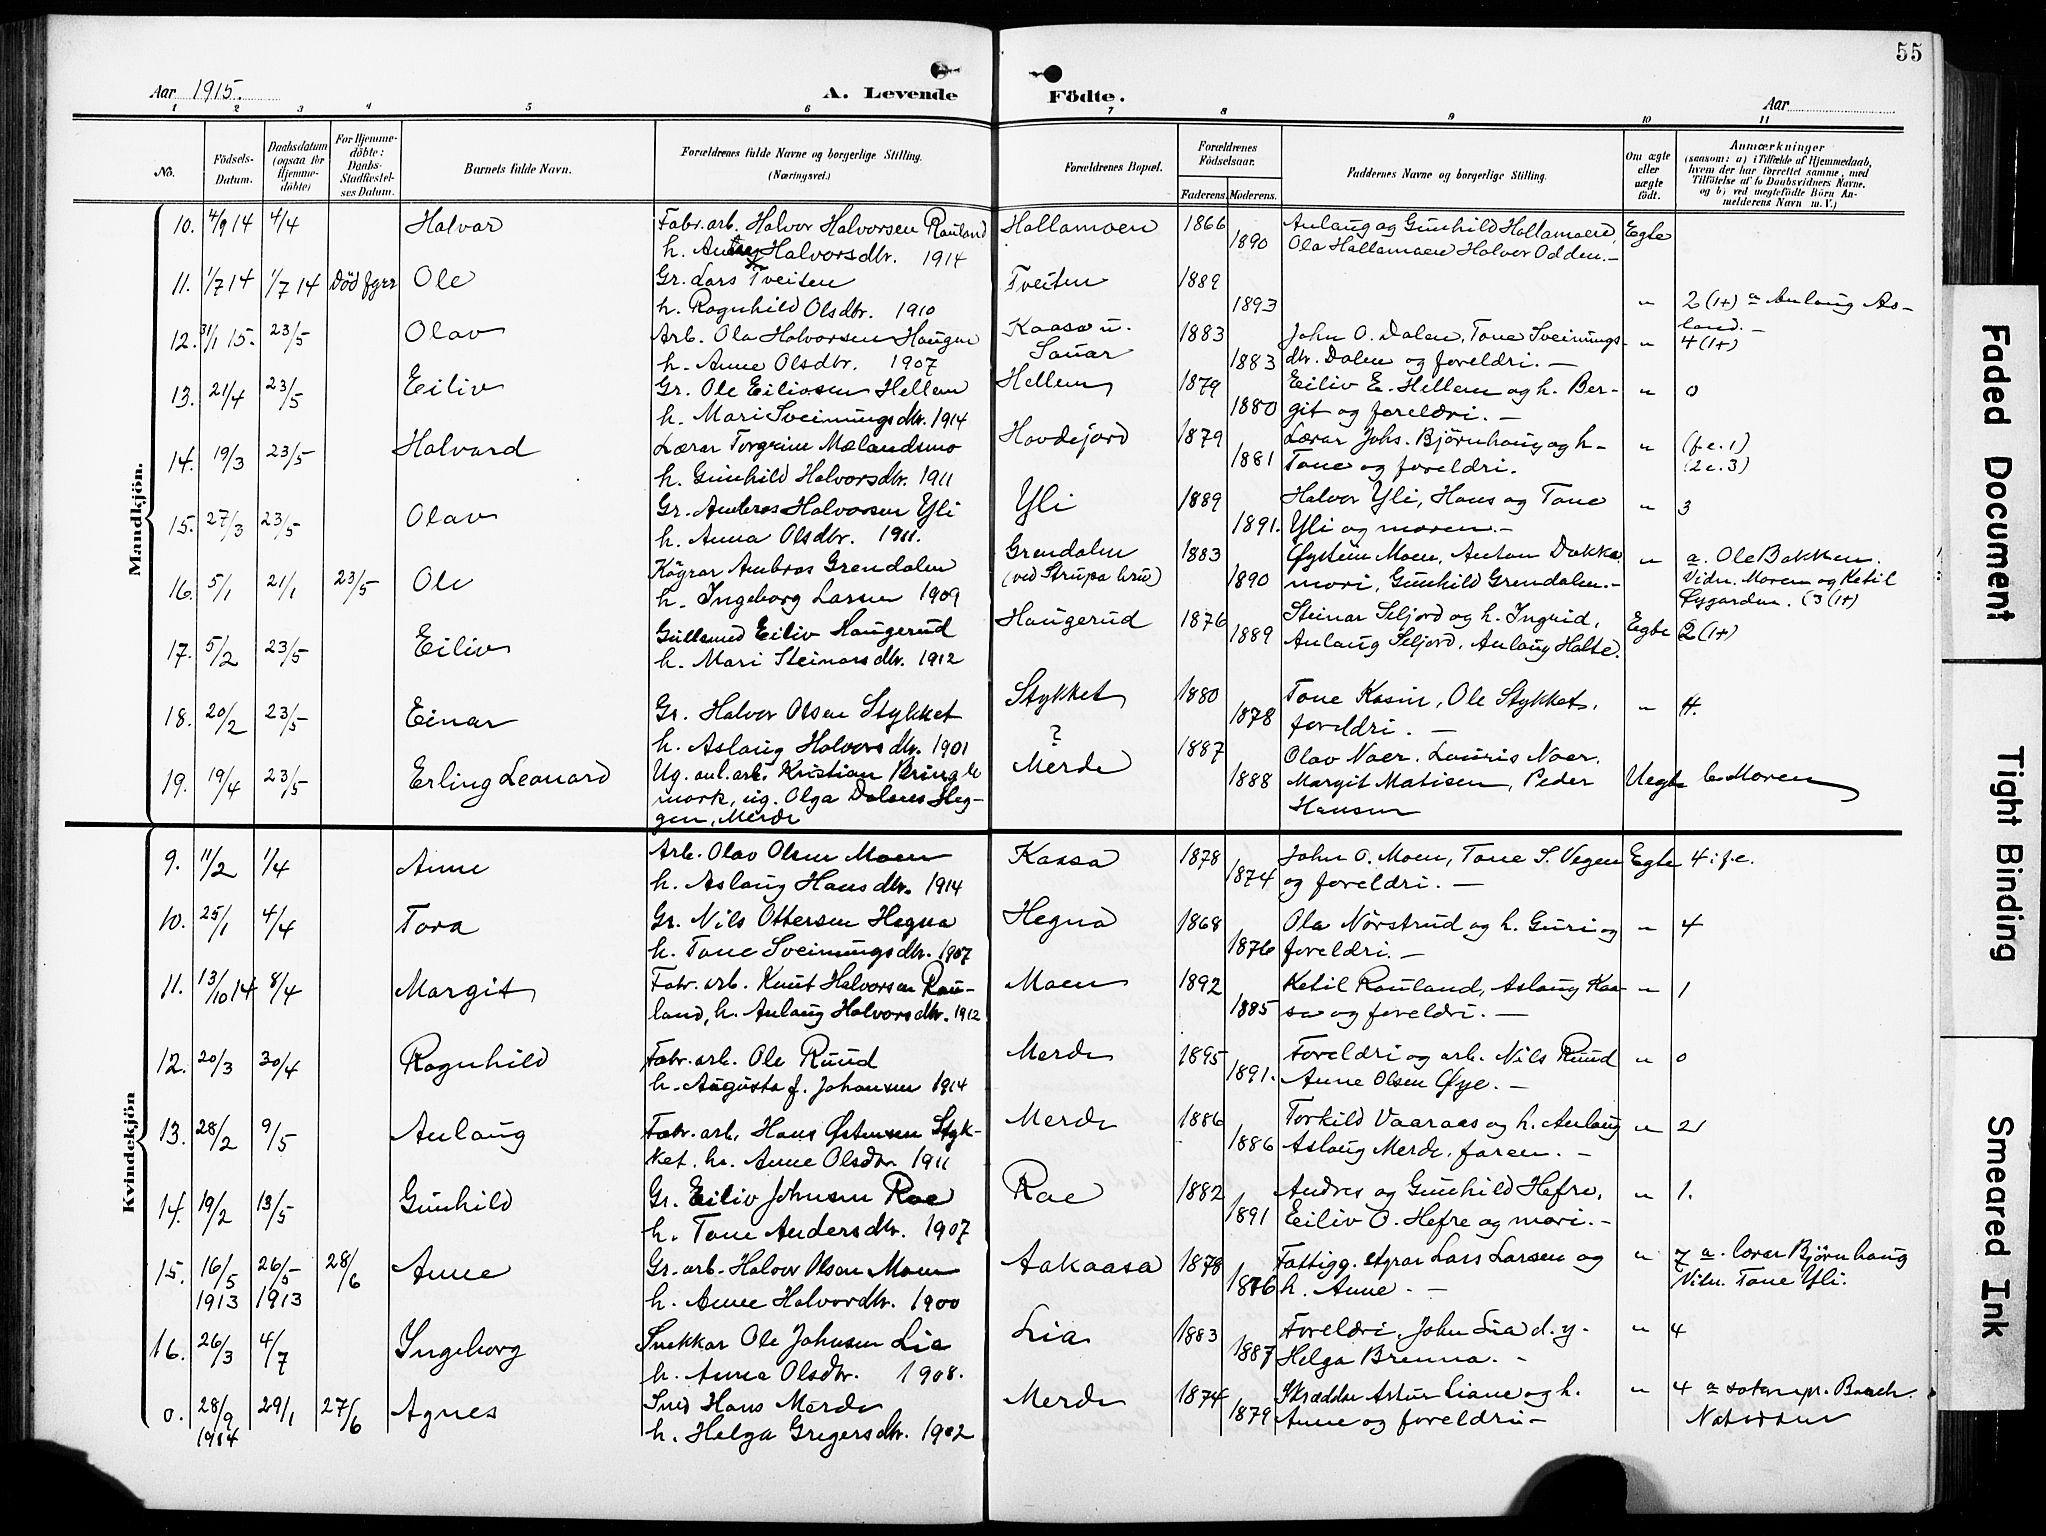 55
Aar 1915.
A. Levende Födte.
Aar
1 2 3 4 5 6 7 8 9 10 11
No.
Födsels-Datum.
Daabsdatum (ogsaa for Hjemme-döbte)
For Hjemme-döbte: Daabs-Stadfæstel-ses Datum.
Barnets fulde Navn.
Forældrenes fulde Navne og borgerlige Stilling. (Næringsvei.)
Forældrenes Bopæl.
Forældrenes Födselsaar.
Faderens. Moderens.
Faddernes Navne og borgerlige Stilling.
Om ægte eller uægte födt.
Anmærkninger
(saasom: a) i Tilfælde af Hjemmedaab,
hvem der har forrettet samme, med
Tilföielse af to Daabsvidners Navne,
og b) ved uægtefödte Börn An-
melderens Navn m. V.)
Mandkjön.
10. 4/9 14 4/4 Halvor Fabr. arb. Halvor Halvorsen Rauland Hollamoen 1866 Aulaug og Gunhild Hollamoen, Egte
h. Halvorsdtr. 1914 1890 Ola Hollamoen Halvor Odden. –
11. 1/7 14 1/7 14 Død fyrr Ole Gr. Lars Tveiten Tveiten 1889
h. Ragnhild Olsdtr. 1910 1893 " 2 (1+) a Aulaug As-
land. –
12. 31/1 15. 23/5 Olav Arb. Ola Halvorsen Haugen Kaasa u. Sauar 1883 John O. Dalen, Tone Sveinungs- " 4 (1+)
h. Anne Olsdtr. 1907 1883 dtr. Dalen og foreldri. –
13. 21/4 23/5 Eiliv Gr. Ole Eilivsen Hellem Hellem 1879 Eiliv E. Hellem og h. Ber- " 0
h. Mari Sveinungsdtr. 1914 1880 git og foreldri. –
14. 19/3 23/5 Halvard Lærar Torgrim Mælandsmo Hovdejord 1879 Lærar Johs. Bjørnhaug og h. " (f. e. 1)
h. Gunhild Halvorsdtr. 1911 1881 Tone og foreldri. (2 e. 3)
15. 27/3 23/5 Olav Gr. Ambros Halvorsen Yli Yli 1889 Halvor Yli, Hans og Tone " 3
h. Anna Olsdtr. 1911. 1891. Yli og moren. –
16. 5/1 21/1 23/5 Ole Køyrar Ambros Grendalen Grendalen (ved Strupa bru) 1883 Øystein Moen, Anton Dokka " a. Ole Bakken.
h. Ingeborg Larsen 1909 1890 mori, Gunhild Grendalen. – Vidn. Moren og Ketil
Øygarden. (3 (1+)
17. 5/2 23/5 Eiliv Gullsmed Eiliv Haugerud Haugerud 1876 Steinar Seljord og h. Ingrid, Egte 2 (1+)
h. Mari Steinarsdtr. 1912 1889 Aulaug Seljord, Aulaug Holte.
18. 20/2 23/5 Einar Gr. Halvor Olsen Stykket Stykket 1880 Tone Kasin, Ole Stykket, " 4.
h. Aslaug Halvorsdtr. 1901 1878 foreldri. –
19. 19/4 23/5 Erling Leonard Ug. anl. arb. Kristian Bringle- ? Merde 1887 Olav Noer. Lauris Noer,
mork, ug. Olga Heg- 1888 Margit Matisen, Peder Uegte b Moren
gen, Merde Hansen
Kvindekjön
9. 11/2 1/4 Anne Arb. Olav Olsen Moen Kaasa 1878 John O. Moen, Tone S. Vegen Egte 4 i f. e.
h. Aslaug Hansdtr. 1914 1874 og foreldri. –
10. 25/1 4/4 Tora Gr. Nils Ottersen Hegna Hegna 1868 Ola Nørstrud og h. Guri og " 4
h. Tone Sveinungsdtr. 1907 1876 foreldri. –
11. 13/10 14 8/4 Margit Fabr. arb. Knut Halvorsen Rau- Moen 1892 Ketil Rauland, Aslaug Kaa- " 1
land, h. Aulaug Halvorsdtr. 1912 1885 sa og foreldri. –
12. 20/3 30/4 Ragnhild Fabr. arb. Ole Ruud Merde 1895 Foreldri og arb. Nils Ruud " 0
h. Augusta f. Johansen 1914 1891. Anne Olsen Øye. –
13. 28/2 9/5 Aulaug Fabr. arb. Hans Østensen Styk- Merde 1886 Torkild Vaaraas og h. Aulaug " 2
ket. h. Anne Olsdtr. 1911 1886 Aslaug Merde, faren. –
14. 19/2 13/5 Gunhild Gr. Eiliv Johnsen Roe Roe 1882 Andres og Gunhild Hefre, " 1.
h. Tone Andersdtr. 1907 1891 Eiliv O. Hefre og mori. –
15. 16/5 1913 26/5 1913 28/6 Anne Gr. arb. Halvor Olsen Moen Aakaasa 1878 Fattigg. styrar Lars Larsen og " 7 a. lærar Bjørnhaug
h. Anne Halvordtr. 1900 1876 h. Anne. – Vitn. Tone Yli.
16. 26/3 4/7 Ingeborg Snekkar Ole Johnsen Lia Lia 1883 Foreldri, John Lia d. y. " 4
h. Anna Olsdtr. 1908. 1887 Helga Brenna. –
0. 28/9 1914 29/1 27/6 Agnes Smed Hans Merde Merde 1874 Skrædder Liane og h. " 4 a soknepr. Baach.
h. Helga Gregersdtr. 1902 1879 Anne og foreldri – Notodden
Faded Document
Tight Binding
Smeared Ink